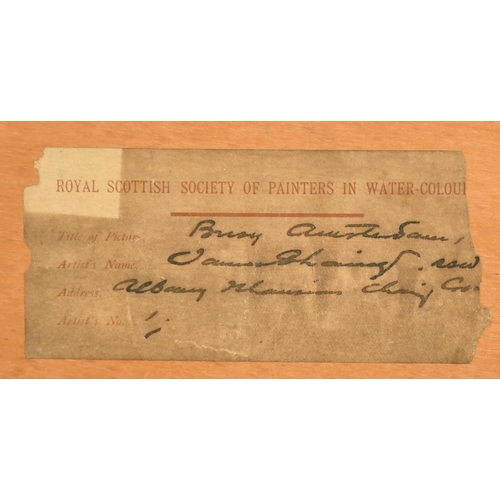 ROYAL SCOTTISH SOCIETY OF PAINTERS IN WATER-COLOU
Title of Picture. Busy Amsterdam,
Artist's Name. James RSW
Address. Albany Mansions Craig
Artist's No. 1;